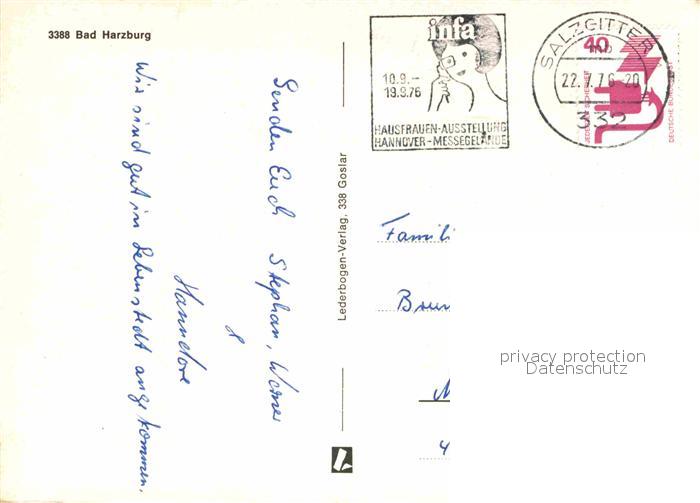 3388 Bad Harzburg
Wir sind gut in Lebenstedt angekommen.
Senden Euch Stephan, Werner
&
Hannelore
Lederbogen-Verlag, 338 Goslar
infa
10.9.–
19.9.76
HAUSFRAUEN-AUSSTELLUNG
HANNOVER-MESSEGELÄNDE
SALZGITTER
22.7.76-20
332
40
JEDERZEIT SICHERHEIT
DEUTSCHE BUNDESPOST
Famili
Brun
4
privacy protection
Datenschutz